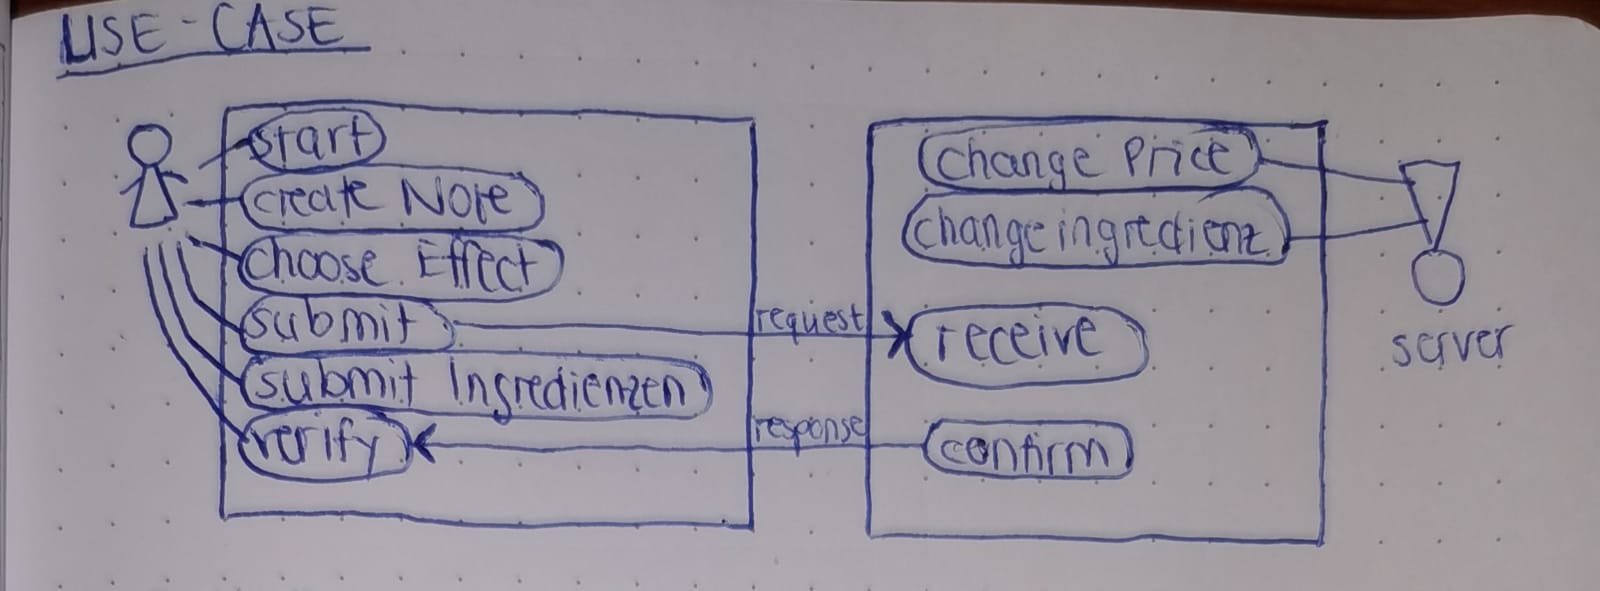 USE-CASE
start
create Note
choose Effect
submit
submit Ingredienzen
verify
request
response
change Price
change ingredienz
receive
confirm
server